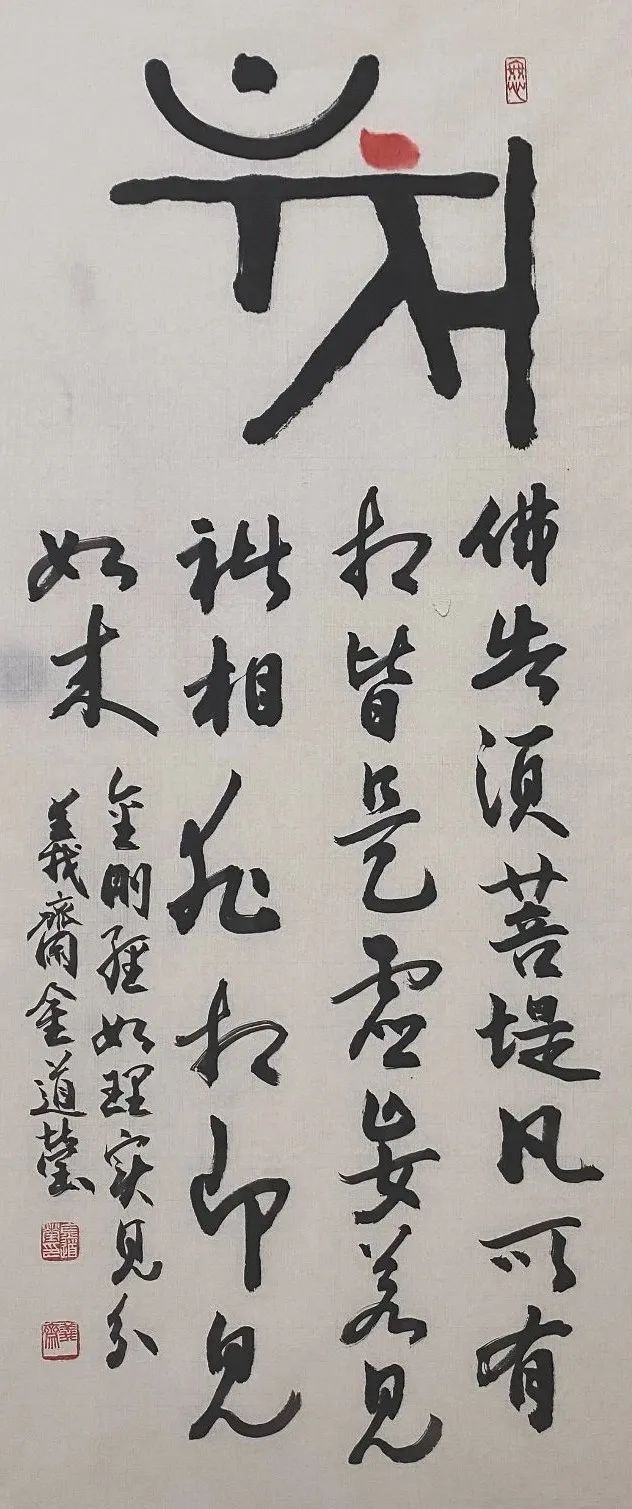 佛告須菩堤凡所有
相皆是虛妄若見
諸相非相即見
如来
金剛經如理実見分
義齋金道瑩